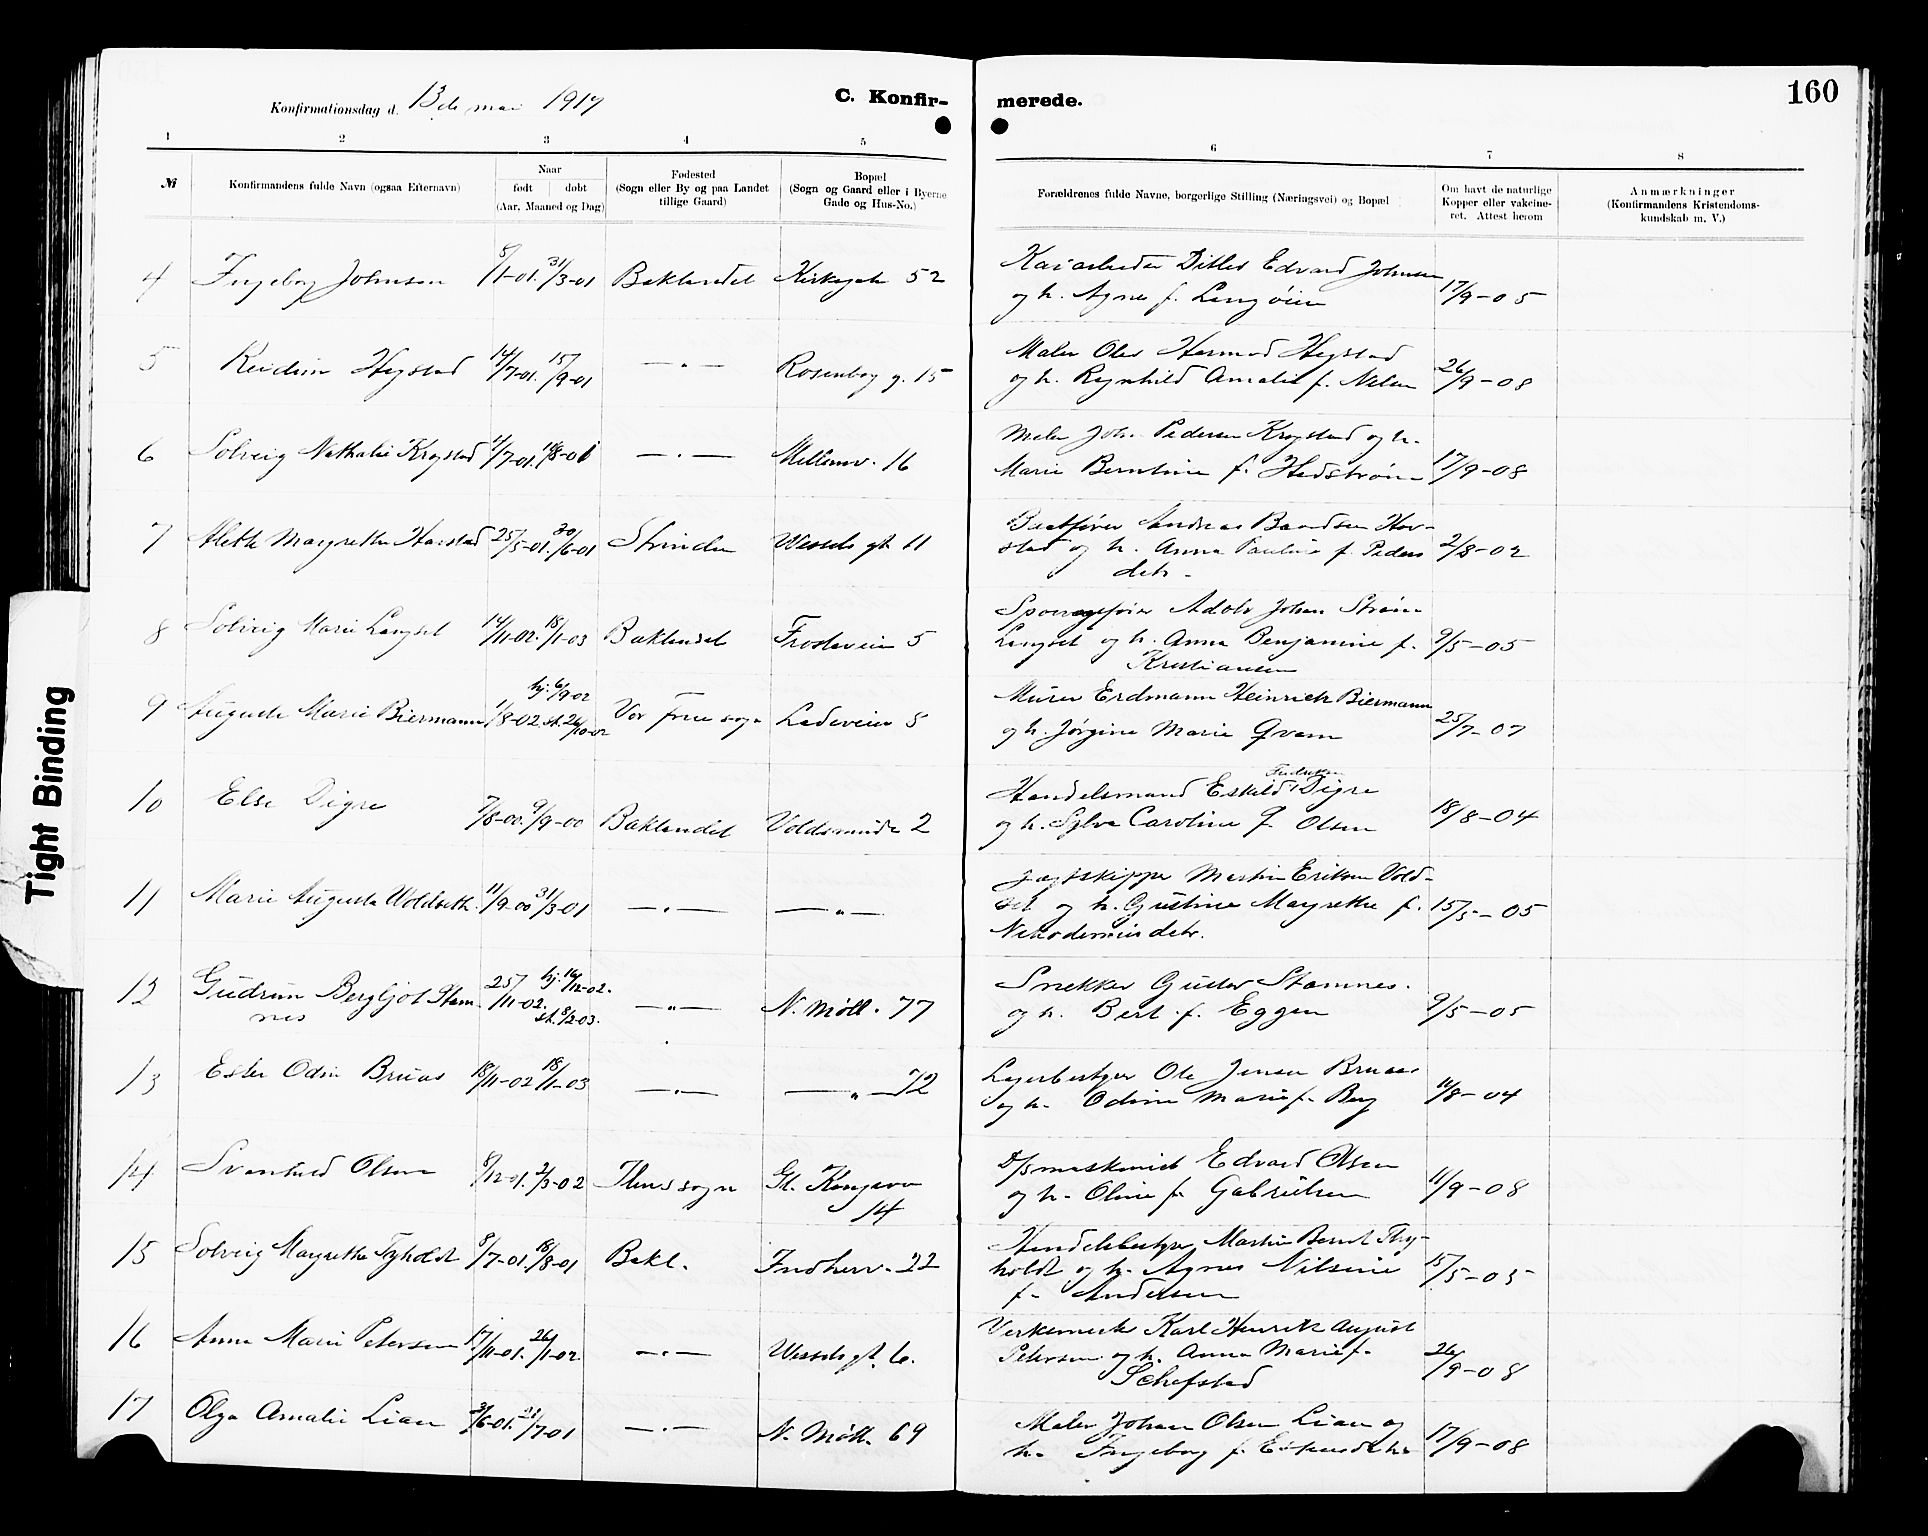 160
Konfirmationsdag d. 13de mai 1917
C. Konfir-
merede.
1 2 3 4 5 6 7 8
№
Konfirmandens fulde Navn (ogsaa Efternavn)
Naar
født døbt
(Aar, Maaned og Dag)
Fødested
(Sogn eller By og paa Landet
tillige Gaard)
Bopæl
(Sogn og Gaard eller i Byerne
Gade og Hus-No.)
Forældrenes fulde Navne, borgerlige Stilling (Næringsvei) og Bopæl
Om havt de naturlige
Kopper eller vakcine-
ret. Attest herom
Anmærkninger
(Konfirmandens Kristendoms-
kundskab m. V.)
4 Ingeborg Johnsen 5/1-01. 31/3-01 Baklandet Kirkegate 52
Ditlev Edvard Johnsen
og h. Agnes f. Langøien 17/9-05
5 Reidun Hegstad 14/7-01. 15/9-01 — " — Rosenborg g. 15
Maler Olav Hermod Hegstad
og h. Regnhild Amalie f. Nilsen 26/9-08
6 Solveig Nathalie Krogstad 11/7-01. 18/8-01 — " — Mellemv. 16
Maler Joh. Pedersen Krogstad og h.
Marie Berntine f. Hedstrøm 17/9-08
7 Aleth Margrethe Harstad 25/5-01. 30/6-01 Strinden Wessels gt 11
Andreas Baardsen Har-
stad og h. Anna Pauline f. Peders
datr. 2/8-02
8 Solveig Marie Langset 14/11-02. 18/1-03 Baklandet Frostaveien 5
Sporvogsfører Adolv Johan Strøm
Langset og h. Anna Benjamine f.
Kristiansen 9/5-05
9 Augusta Marie Biermann 1/8-02. hj. 6/9-02 st. 26/10-02 Vor Frue sogn Ladeveien 5
Murer Erdmann Heinrich Biermann
og h. Jørgine Marie Qvam 25/7-07
10 Else Digre 7/8-00. 9/9-00 Baklandet Voldsminde 2
Handelsmand Eskild Fredriksen Digre
og h. Sylva Caroline f. Olsen 18/8-04
11 Marie Augusta Woldseth 11/9-00 31/3-01 — " — — " —
Jagtskipper Martin Eriksen Vold-
set og h. Gustine Margrethe f.
Nikodemusdatr. 15/5-05
12 Gudrun Bergljot Stam-
nes 25/11-02. hj. 14/12-02. st. 8/2-03. — " — N. Møll. 77
Snekker Gustav Stamnes.
og h. Berit f. Eggen 9/5-05
13 Ester Odin Bruas 18/11-02 18/1-03 — " — — " — 72
Lagerbestyrer Ole Jensen Bruaas
og h. Odine Marie f. Berg 10/8-04
14 Svanhild Olsen 8/12-01. 2/3-02 Ilens sogn Gl. Kongevei
14
D/s maskinist Edvard Olsen
og h. Oline f. Gabrielsen 11/9-08
15 Solveig Margrethe Tyholdt 8/7-01. 18/8-01 Bakl. Indherv. 22
Handelsbestyrer Martin Bernt Thy-
holdt og h. Agnes Nilsine
f. Andersen 15/5-05
16 Anna Marie Petersen 17/11-01. 26/1-02. — " — Wessels gt. 6.
Verksmester Karl Henrik August
Petersen og h. Anna Marie f.
Schefstad 26/9-08
17 Olga Amalie Lian 3/6-01. 21/7-01 — " — N. Møll. 69
Maler Johan Olsen Lian og
h. Ingeborg f. 17/9-08
Tight Binding